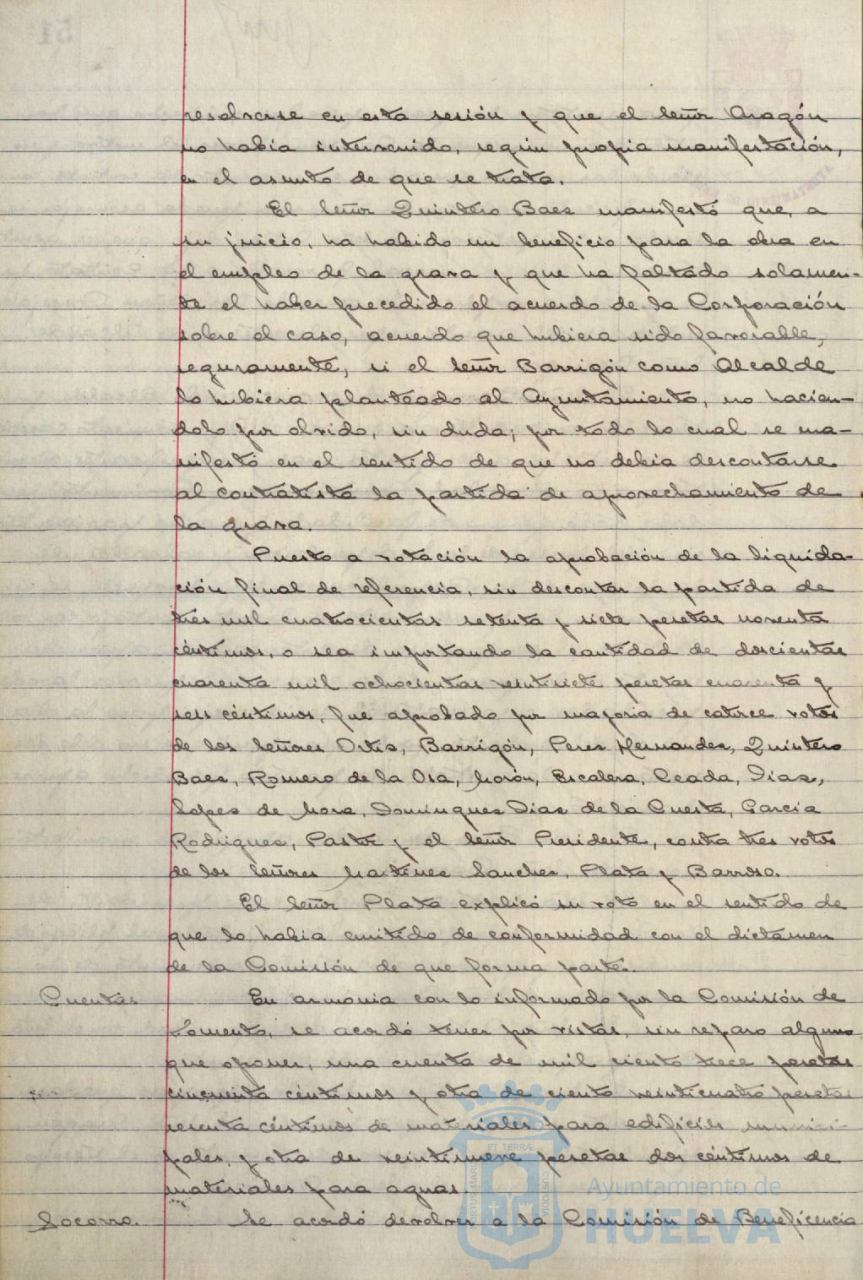 resolverse en esta sesión y que el señor Aragón
no había intervenido, según propia manifestación,
en el asunto de que se trata.
El señor Quintero Baez manifestó que, a
su juicio, ha habido un beneficio para la obra en
el empleo de la grava y que ha faltado solamen-
te el haber precedido el acuerdo de la Corporación
sobre el caso, acuerdo que hubiera sido favorable,
seguramente, si el señor Barrigón como Alcalde
lo hubiera planteado al Ayuntamiento, no hacien-
dolo por olvido, sin duda; por todo lo cual se ma-
nifestó en el sentido de que no debia descontarse
al contratista la partida de aprovechamiento de
la grava.
Puesto a votación la aprobación de la liquida-
ción final de referencia, sin descontar la partida de
tres mil cuatrocientas setenta y siete pesetas noventa
céntimos, o sea importando la cantidad de doscientas
cuarenta mil ochocientas veintisiete pesetas cuarenta y
seis céntimos, fue aprobado por mayoria de catorce votos
de los señores Ortiz, Barrigón, Perez Hernandez, Quintero
Baez, Romero de la Osa, Morón, Escalera, Ceada, Diaz,
Lopez de Mora, Dominguez Diaz de la Cuesta, Garcia
Rodriguez, Pastor y el señor Presidente, contra tres votos
de los señores Martinez Sanchez, Plata y Barroso.
El señor Plata explicó su voto en el sentido de
que lo habia emitido de conformidad con el dictamen
de la Comisión de que forma parte.
Cuentas En armonia con lo informado por la Comisión de
Fomento, se acordó tener por vistas, sin reparo alguno
que oponer, una cuenta de mil ciento trece pesetas
cincuenta céntimos y otra de ciento veinticuatro pesetas
sesenta céntimos de materiales para edificios munici-
pales, y otra de veintinueve pesetas dos céntimos de
materiales para aguas.
Socorro. Se acordó devolver a la Comisión de Beneficencia
Ayuntamiento de
HUELVA